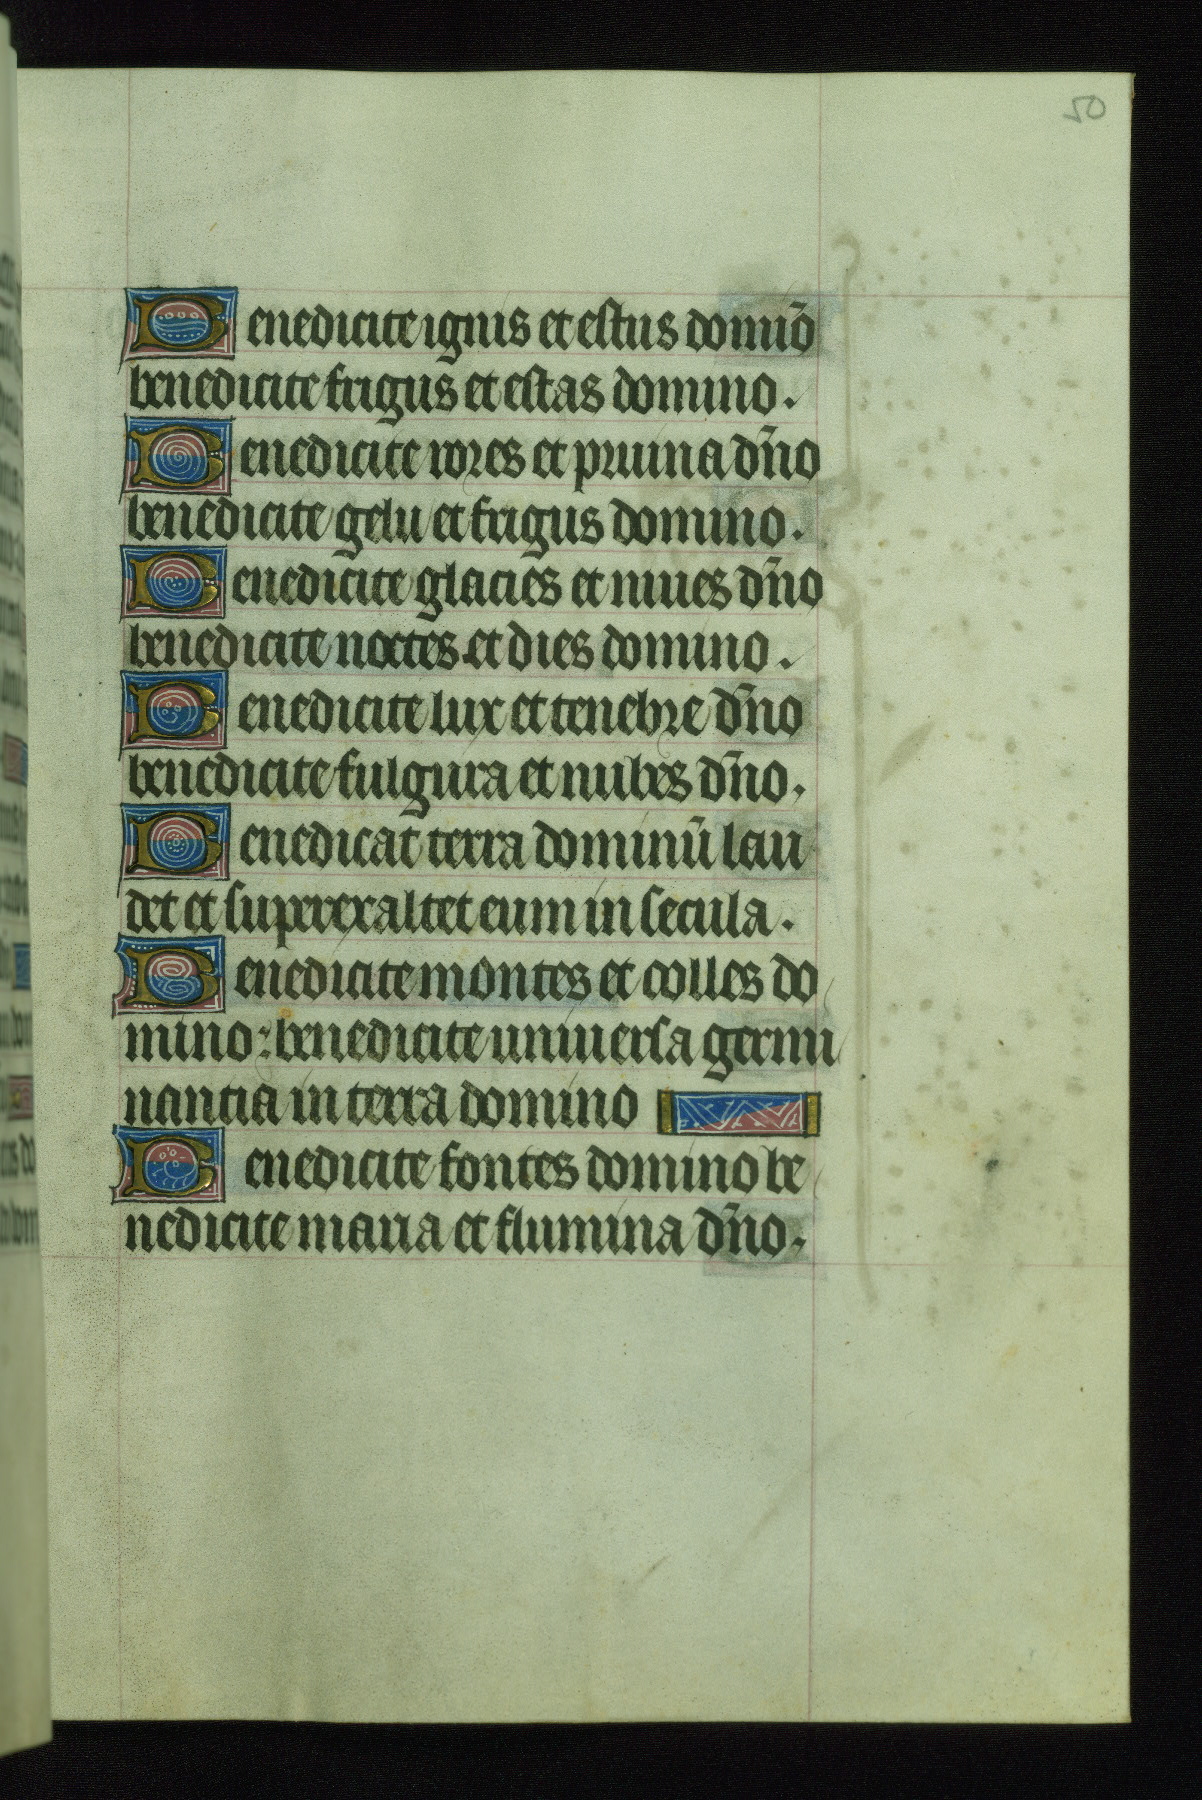 50
Benedicite ignis et estus domiō
benedicite frigus et estas domino.
Benedicite rores et pruina dn̄o
benedicite gelu et frigus domino.
Benedicite glacies et niues dn̄o
benedicite noctes et dies domino.
Benedicite lux et tenebre dn̄o
benedicite fulgura et nubes dn̄o.
Benedicat terra dominū lau
det et superexaltet eum in secula.
Benedicite montes et colles do
mino: benedicite uniuersa germi
nantia in terra domino
Benedicite fontes domino be
nedicite maria et flumina dn̄o.